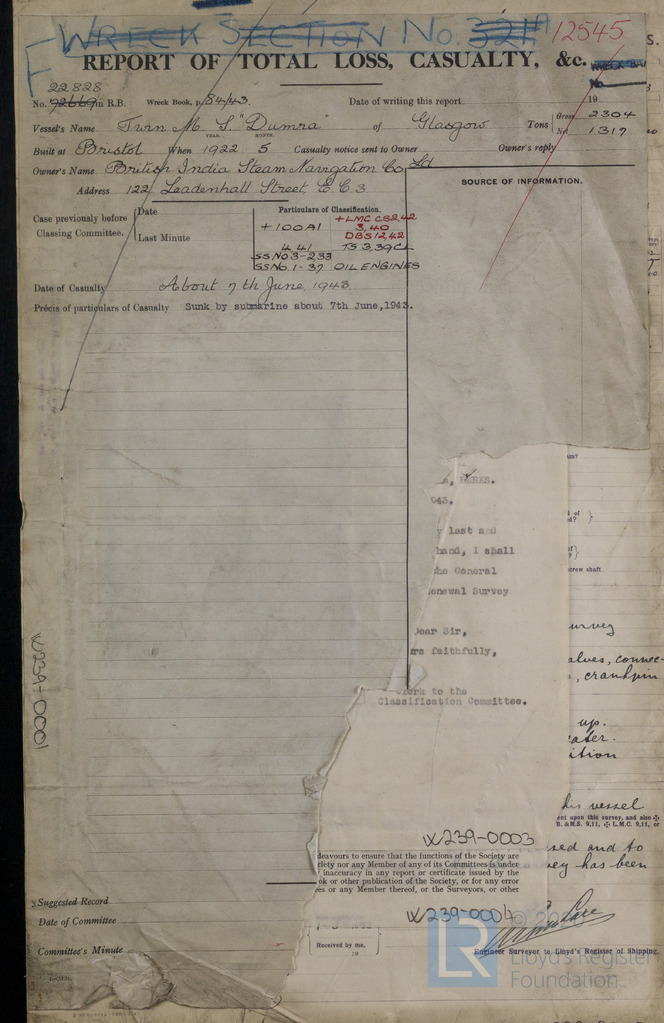 WRECK SECTION No. 321A 12545
F
REPORT OF TOTAL LOSS, CASUALTY, &c.
22828
No. 92669 in R.B. Wreck Book, p. 84/43. Date of writing this report 19
YEAR. MONTH.
Vessel's Name Twin M. S. "Dumra" of Glasgow Tons Gross 2304
Net 1317
Built at Bristol When 1922 5 Casualty notice sent to Owner Owner's reply
Owner's Name British India Steam Navigation Co. Ld
Address 122 Leadenhall Street E.C.3.
SOURCE OF INFORMATION.
Case previously before Classing Committee.
Date
Last Minute
Particulars of Classification.
+LMC CS2,42
+100A1 3,40
DBS12,42
4,41 TS 3,39CL
SSNo3-2,33
SSNo.1-37 OIL ENGINES
Date of Casualty About 7th June, 1943.
Précis of particulars of Casualty Sunk by submarine about 7th June, 1943.
943.
y last and
hand, I shall
he General
enewal Survey
Dear Sir,
rs faithfully,
Clerk to the
Classification Committee.
crew shaft
urvey
alves, connec-
, crankpin
up.
eater.
ition
his vessel
ent upon this survey, and also
B. &M.S. 9,11, L.M.C. 9,11, or
sed and to
vey has been
W239-0001
W239-0003
deavours to ensure that the functions of the Society are
ciety nor any Member of any of its Committees is under
inaccuracy in any report or certificate issued by the
ok or other publication of the Society, or for any error
es or any Member thereof, or the Surveyors, or other
Suggested Record
W239-0004
Date of Committee
Received by me,
19
Committee's Minute
Engineer Surveyor to Lloyd's Register of Shipping.
LR
Lloyd's Register
Foundation